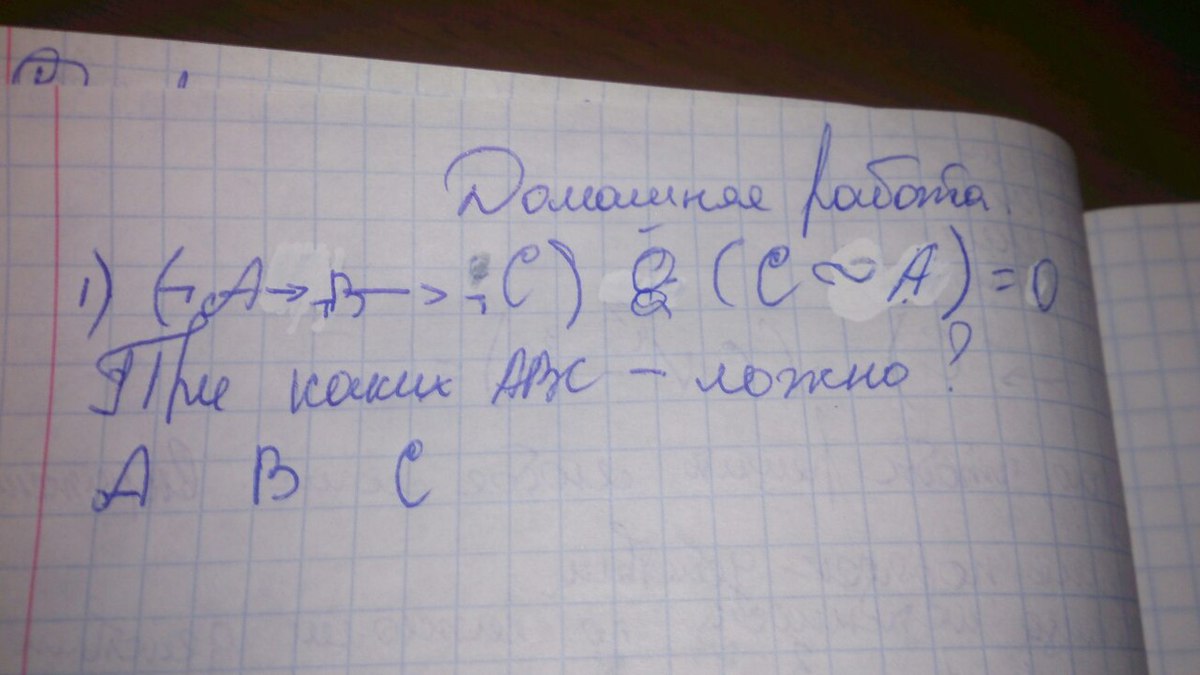 Домашняя работа.
1) (¬A → B → ¬C) & (C ~ A) = 0
При каких ABC – ложно?
A B C